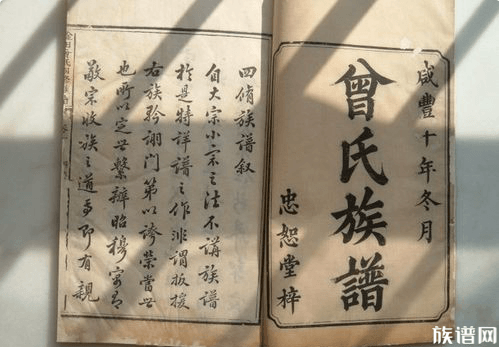 咸豐十年冬月
曾氏族譜
忠恕堂梓
四脩族譜叙
自大宗小宗之法不講族譜
於是特詳譜之作非謂扳援
右族矜詡門第以誇榮當世
也所以定世繫辨昭穆寓
敬宗收族之道焉即有親
族谱网